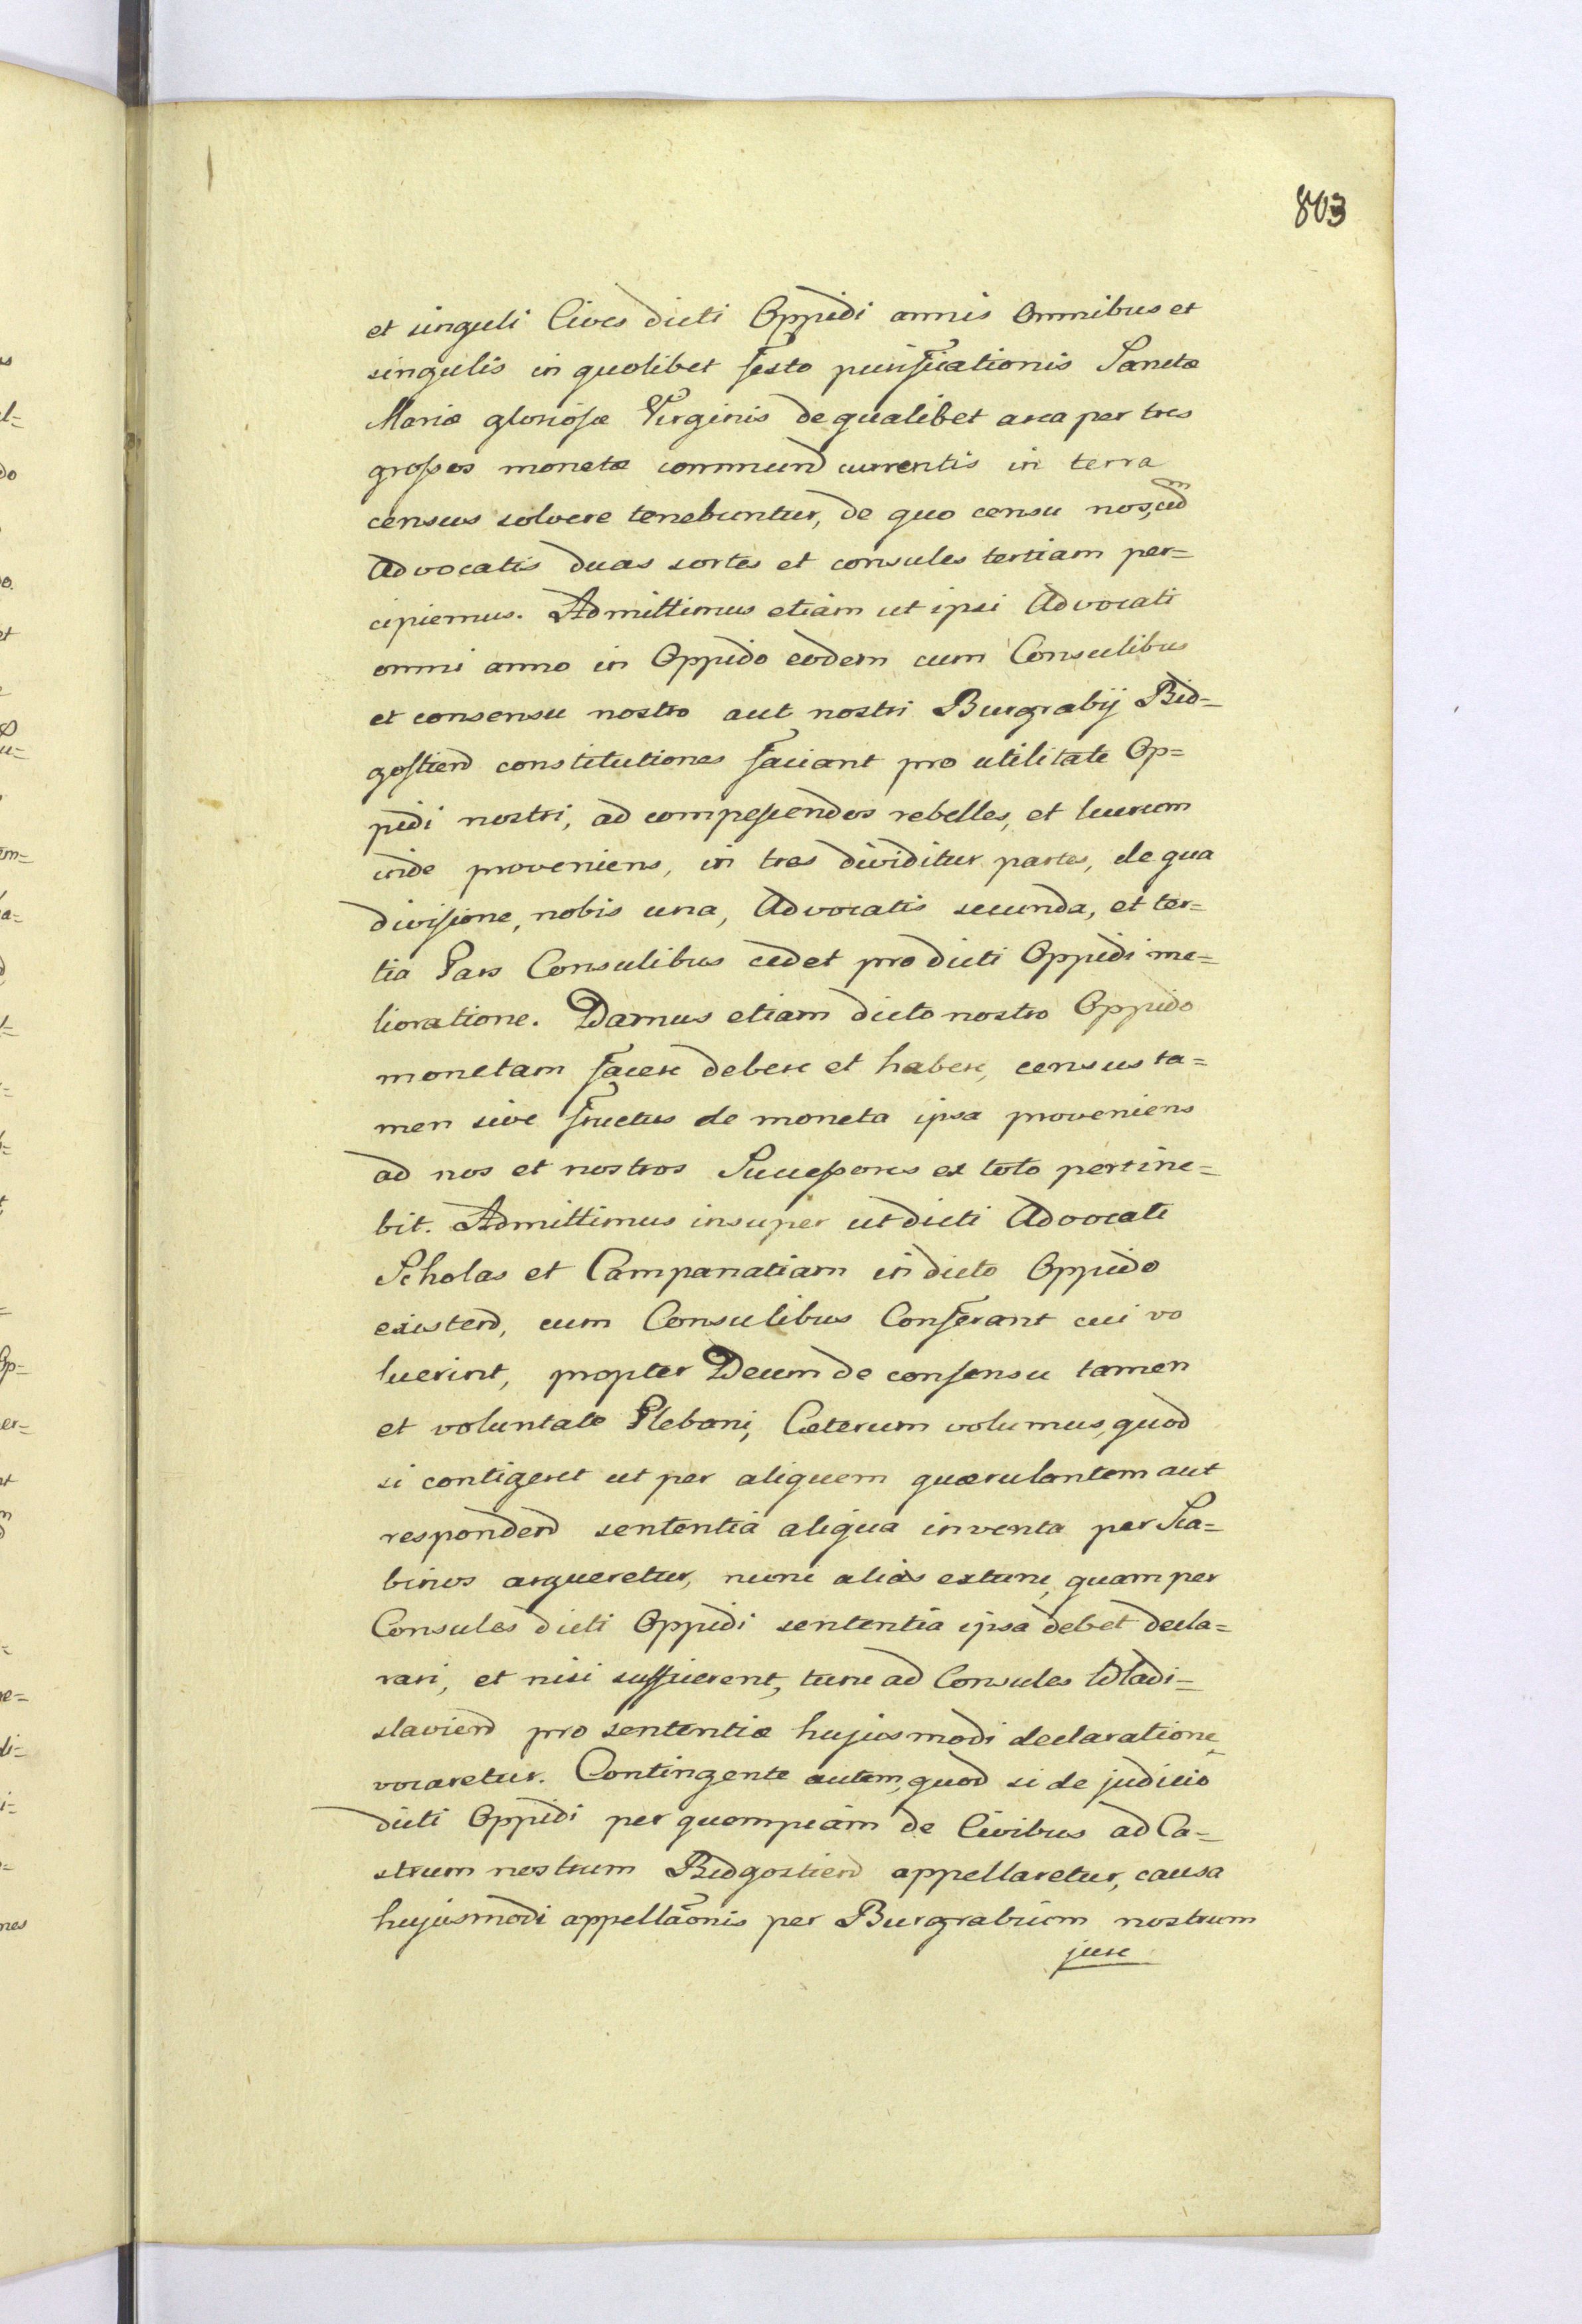 803
et singuli Cives dicti Oppidi annis Omnibus et
singulis in quolibet festo purificationis Sanctæ
Mariæ gloriosæ Virginis de qualibet area per tres
grossos monetæ commund currentis in terra
census solvere tenebuntur, de quo censu nos, cum
Advocatis duas sortes et consules tertiam per=
cipiemus. Admittimus etiam ut ipsi Advocati
omni anno in Oppido eodem cum Consulibus
et consensu nostro aut nostri Burgrabij Bid=
gostiend constitutiones faciant pro utilitate Op=
pidi nostri, ad compescendos rebelles, et lucrum
inde proveniens, in tres dividitur partes, de qua
divisione, nobis una, Advocatis secunda, et ter=
tia Pars Consulibus cedet pro dicti Oppidi me=
lioratione. Damus etiam dicto nostro Oppido
monetam facere debere et habere, census ta=
men sive fructus de moneta ipsa proveniens
ad nos et nostros Successores ex toto pertine=
bit. Admittimus insuper ut dicti Advocati
Scholas et Campanatiam in dicto Oppido
existend, cum Consulibus Conferant cui vo
luerint, propter Deum de consensu tamen
et voluntate Plebani, Cæterum volumus, quod
si contigeret ut per aliquem quærulantem aut
respondend sententia aliqua inventa per Sca=
binos argueretur, nunc alias extunc, quam per
Consules dicti Oppidi sententia ipsa debet decla=
rari, et nisi sufficerent, tunc ad Consules Wladi=
slaviend pro sententiæ hujusmodi declaratione
vocaretur. Contingente autem, quod si de judicio
dicti Oppidi per quempiam de Civibus ad Ca=
strum nostrum Bidgostiend appellaretur, causa
hujusmodi appellaõnis per Burgrabium nostrum
jure